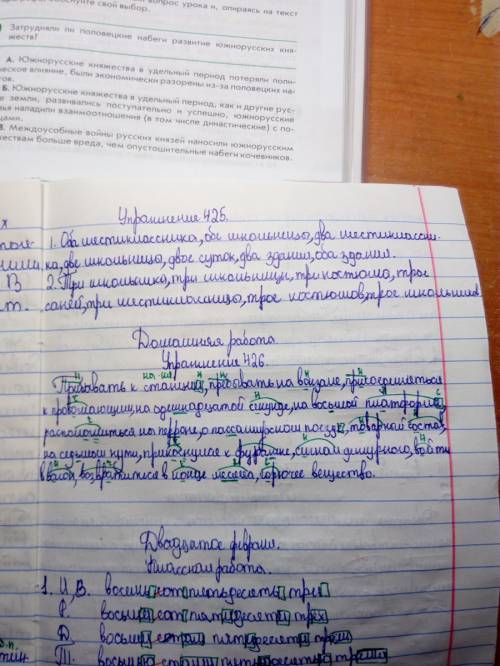 вопрос урока и, опираясь на текст
обоснуйте свой выбор.
Затрудняли ли половецкие набеги развитие южнорусских кня-
жеств?
А. Южнорусские княжества в удельный период потеряли поли-
ческое влияние, были экономически разорены из-за половецких на-
гов.
Б. Южнорусские княжества в удельный период, как и другие рус-
е земли, развивались поступательно и успешно, южнорусские
зья наладили взаимоотношения (в том числе династические) с по-
цами.
В. Междоусобные войны русских князей наносили южнорусским
жествам больше вреда, чем опустошительные набеги кочевников.
Упражнение 425.
1. Оба шестиклассника, обе школьницы, два шестиклассни-
ка, две школьницы, двое суток, два здания, оба здания.
В 2. Три школьника, три школьницы, три костюма, трое
т. саней, три шестиклассницы, трое костюмов, трое школьников
Домашняя работа.
Упражнение 426.
Прибывать к станции, пребывать на вокзале, присоединяться
к провожающим, на одиннадцатой секунде, на восьмой платформе,
расположиться на перроне, о пассажирском поезде, товарный состав,
на седьмом пути, прикоснулся к фуражке, сигнал дежурного, войти
в вагон, возвратиться в конце месяца, горючее вещество.
Двадцатое февраля.
Классная работа.
1. И, В. восемьсот пятьдесят три
Р. восьмисот пятидесяти трёх
Д. восьмистам пятидесяти трём
Т.